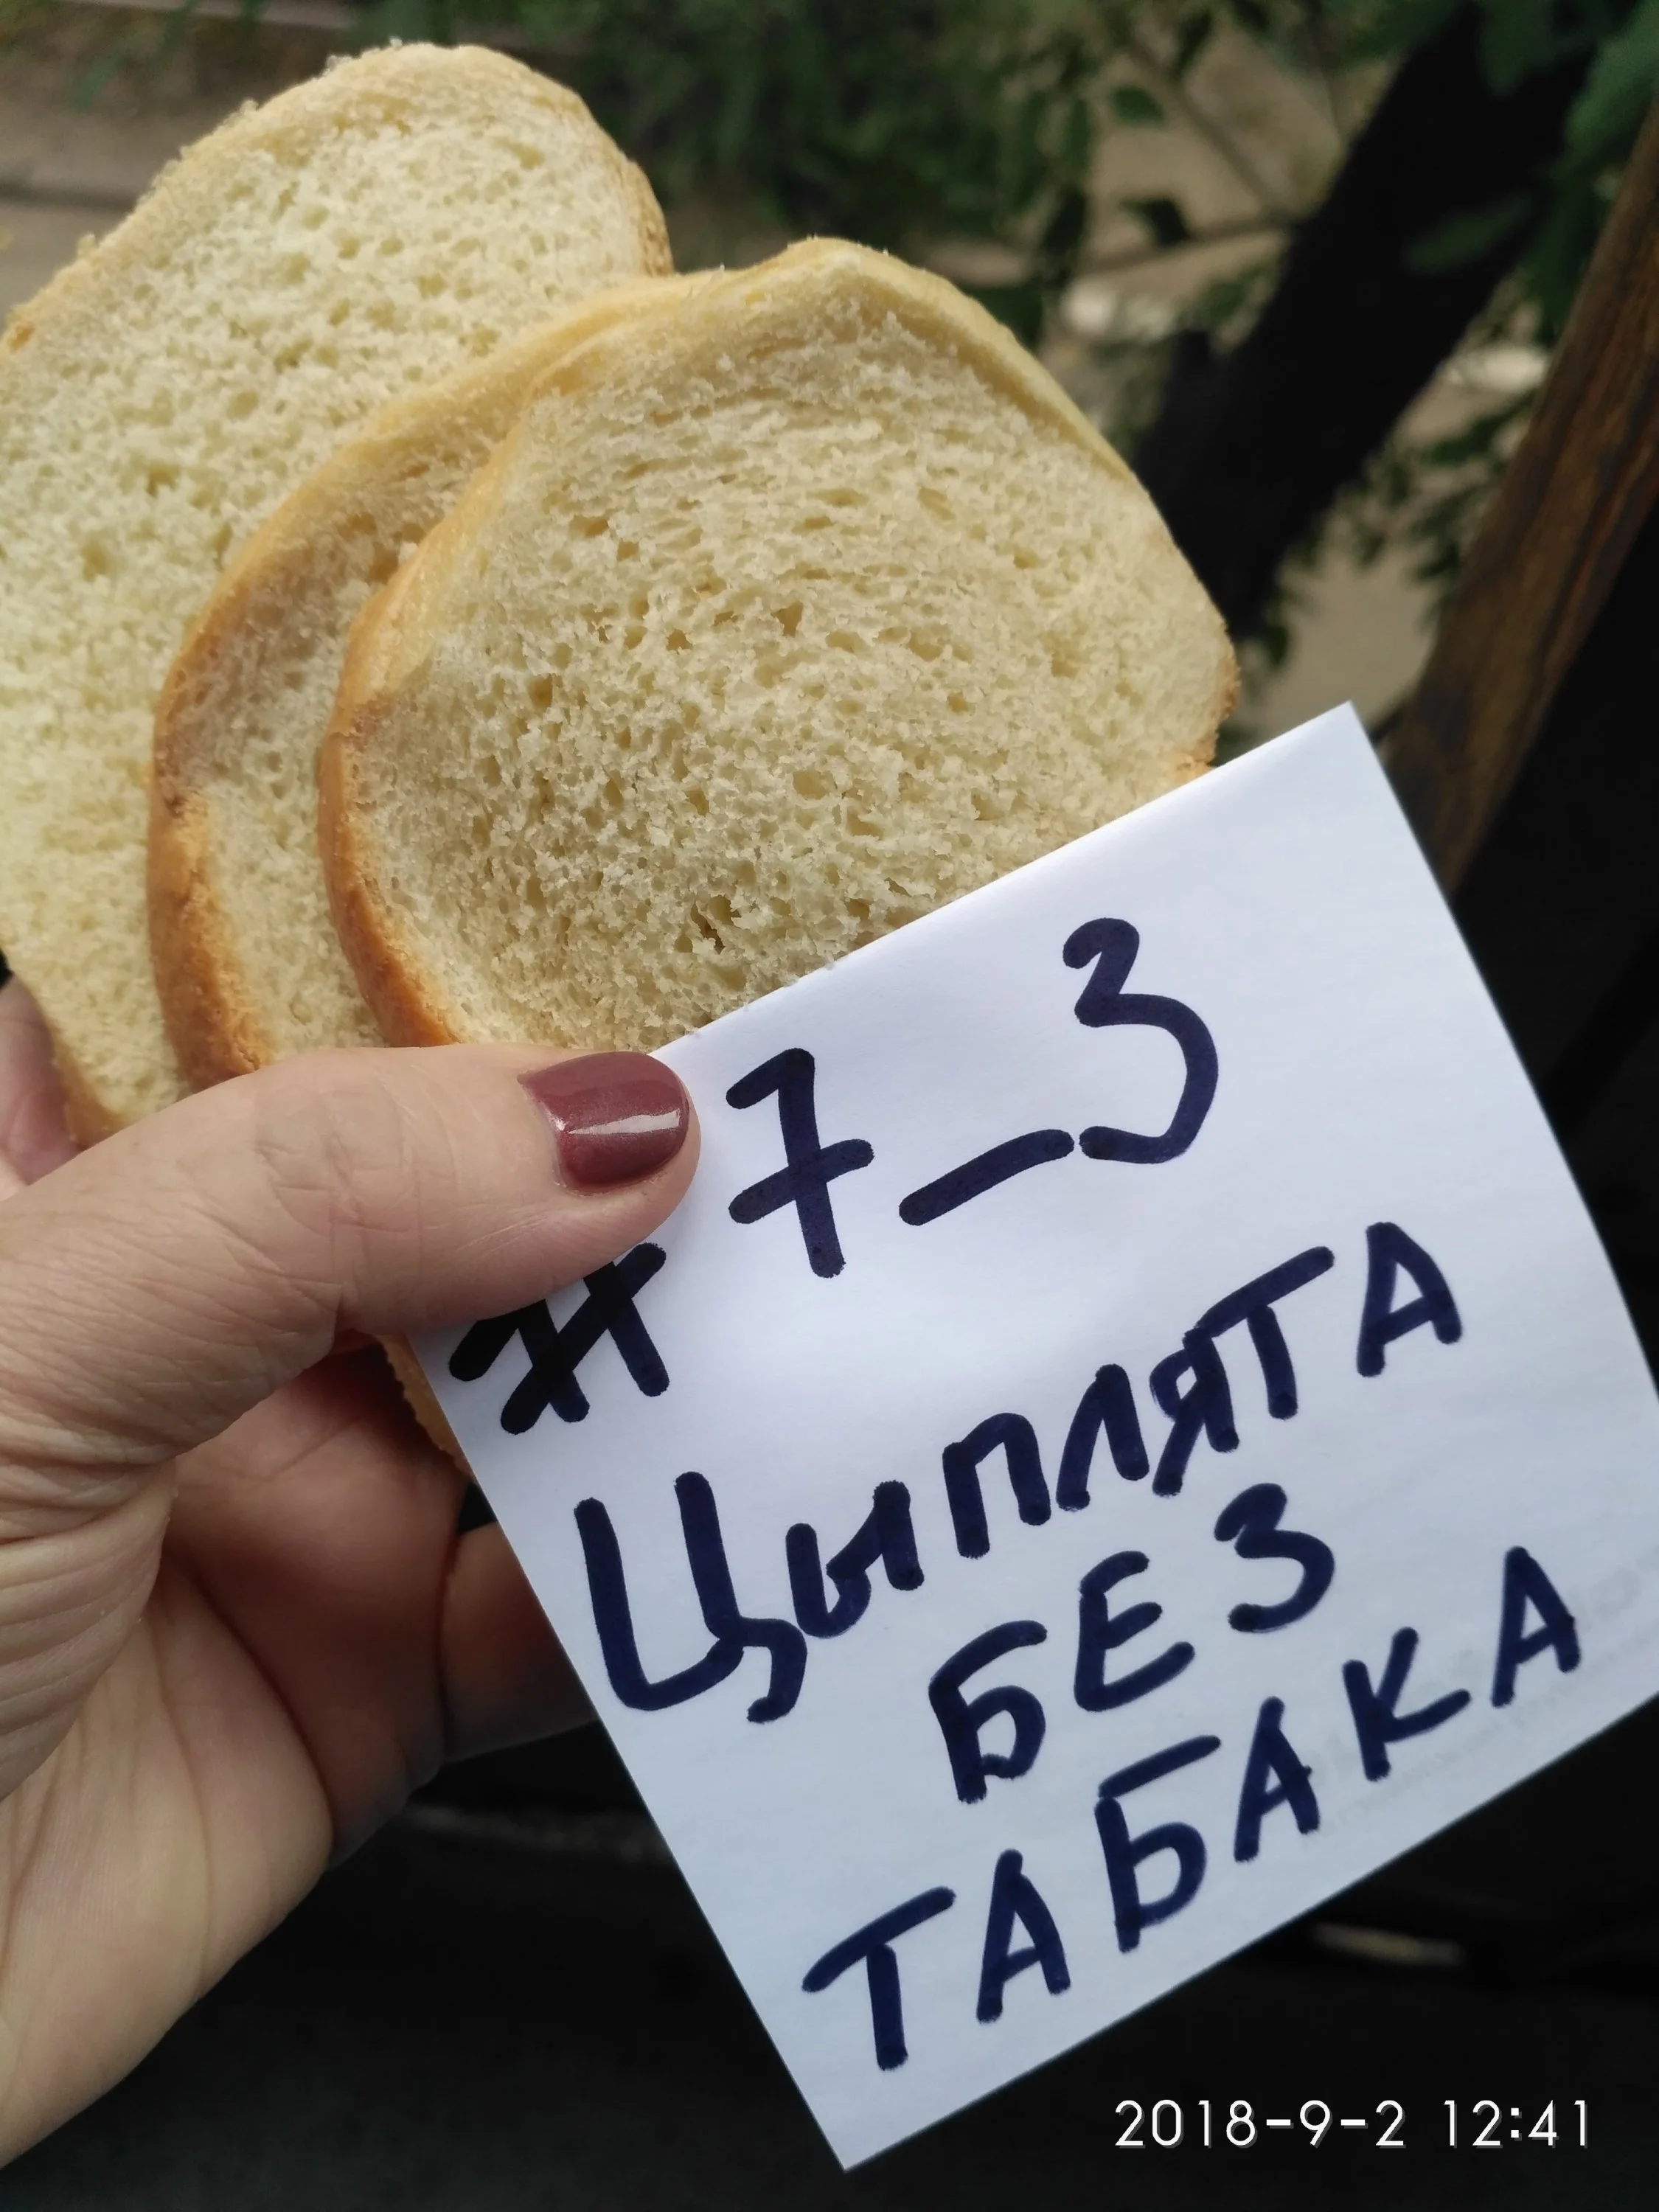 #7_3
ЦЫПЛЯТА
БЕЗ
ТАБАКА
2018-9-2 12:41